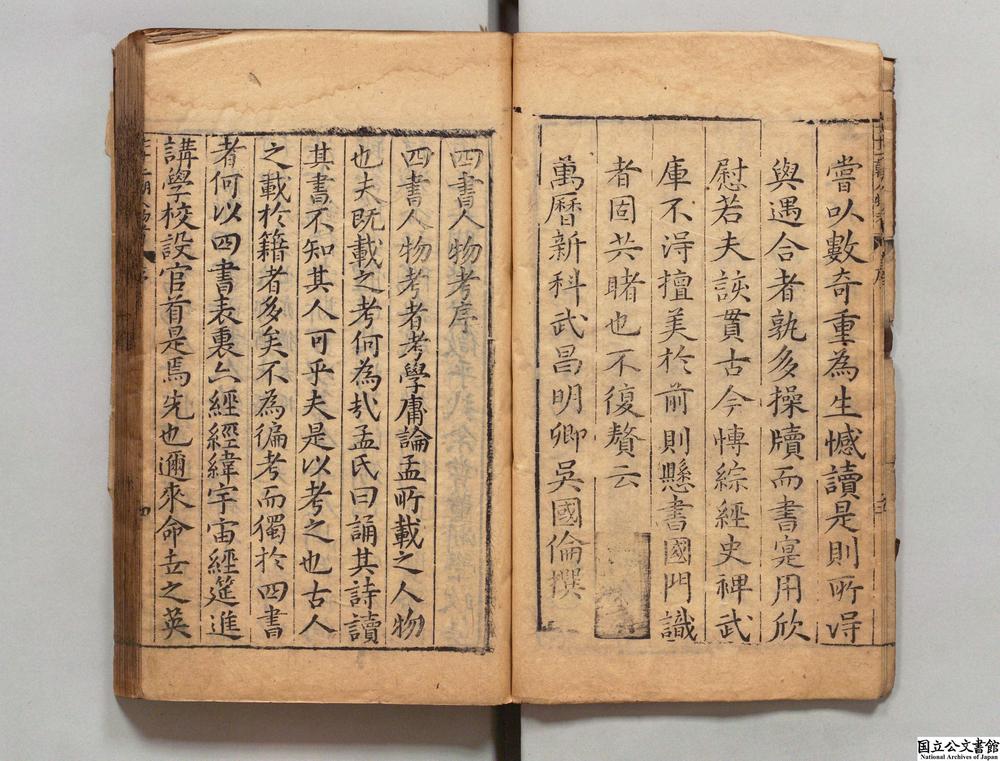 嘗以數奇重為生憾讀是則所淂
與遇合者孰多操牘而書寔用欣
慰若夫詼貫古今慱綜經史裨武
庫不淂擅美於前則懸書國門識
者固共睹也不復贅云
萬曆新科武昌明卿吳國倫撰
四書人物考序
四書人物考者考學庸論孟所載之人物
也夫既載之考何為㢤孟氏曰誦其詩讀
其書不知其人可乎夫是以考之也古人
之載於籍者多矣不為徧考而獨於四書
者何以四書表裏六經經緯宇宙經筵進
講學校設官首是焉先也邇來命世之英
国立公文書館
National Archives of Japan